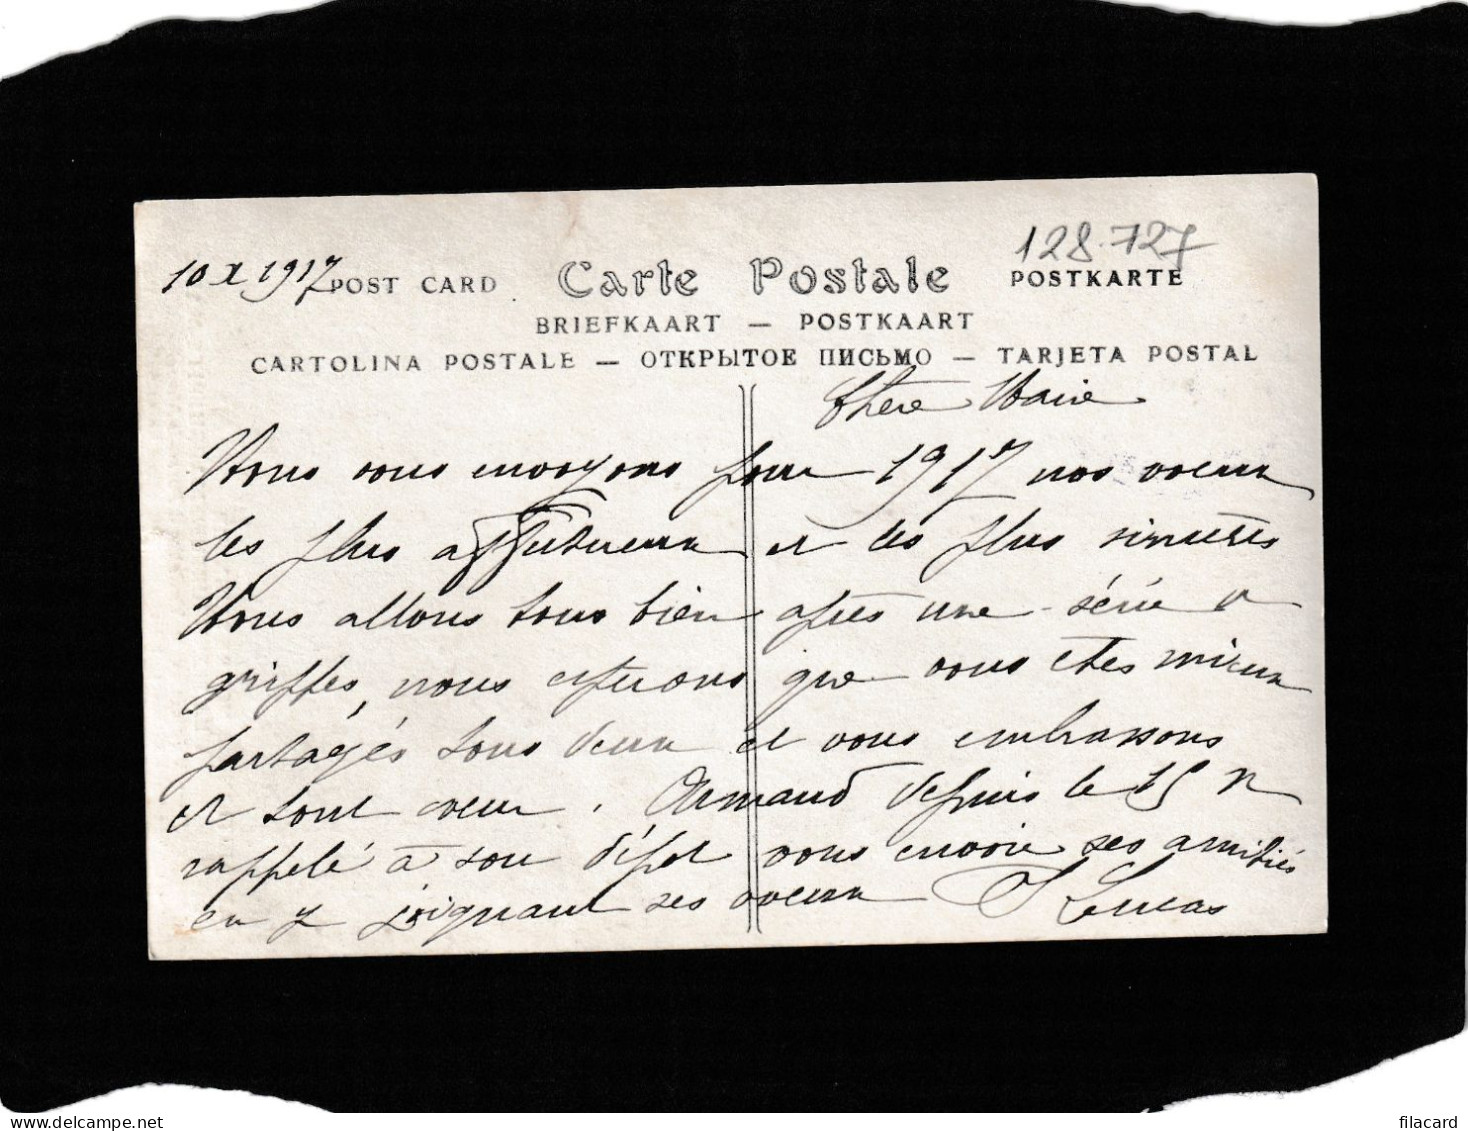 128.727
10 X 1917
POST CARD Carte Postale POSTKARTE
BRIEFKAART — POSTKAART
CARTOLINA POSTALE — ОТКРЫТОЕ ПИСЬМО — TARJETA POSTAL
Chère Marie
Nous vous envoyons pour 1917 nos voeux
les plus affectueux et les plus sincères
Nous allons tous bien après une série de
grippes, nous espérons que vous êtes mieux
partagés tous deux et vous embrassons
de tout coeur. Armand depuis le 15 9
rappelé à son dépot vous envoie ses amitiés
en y joignant ses voeux Lucas
filacard